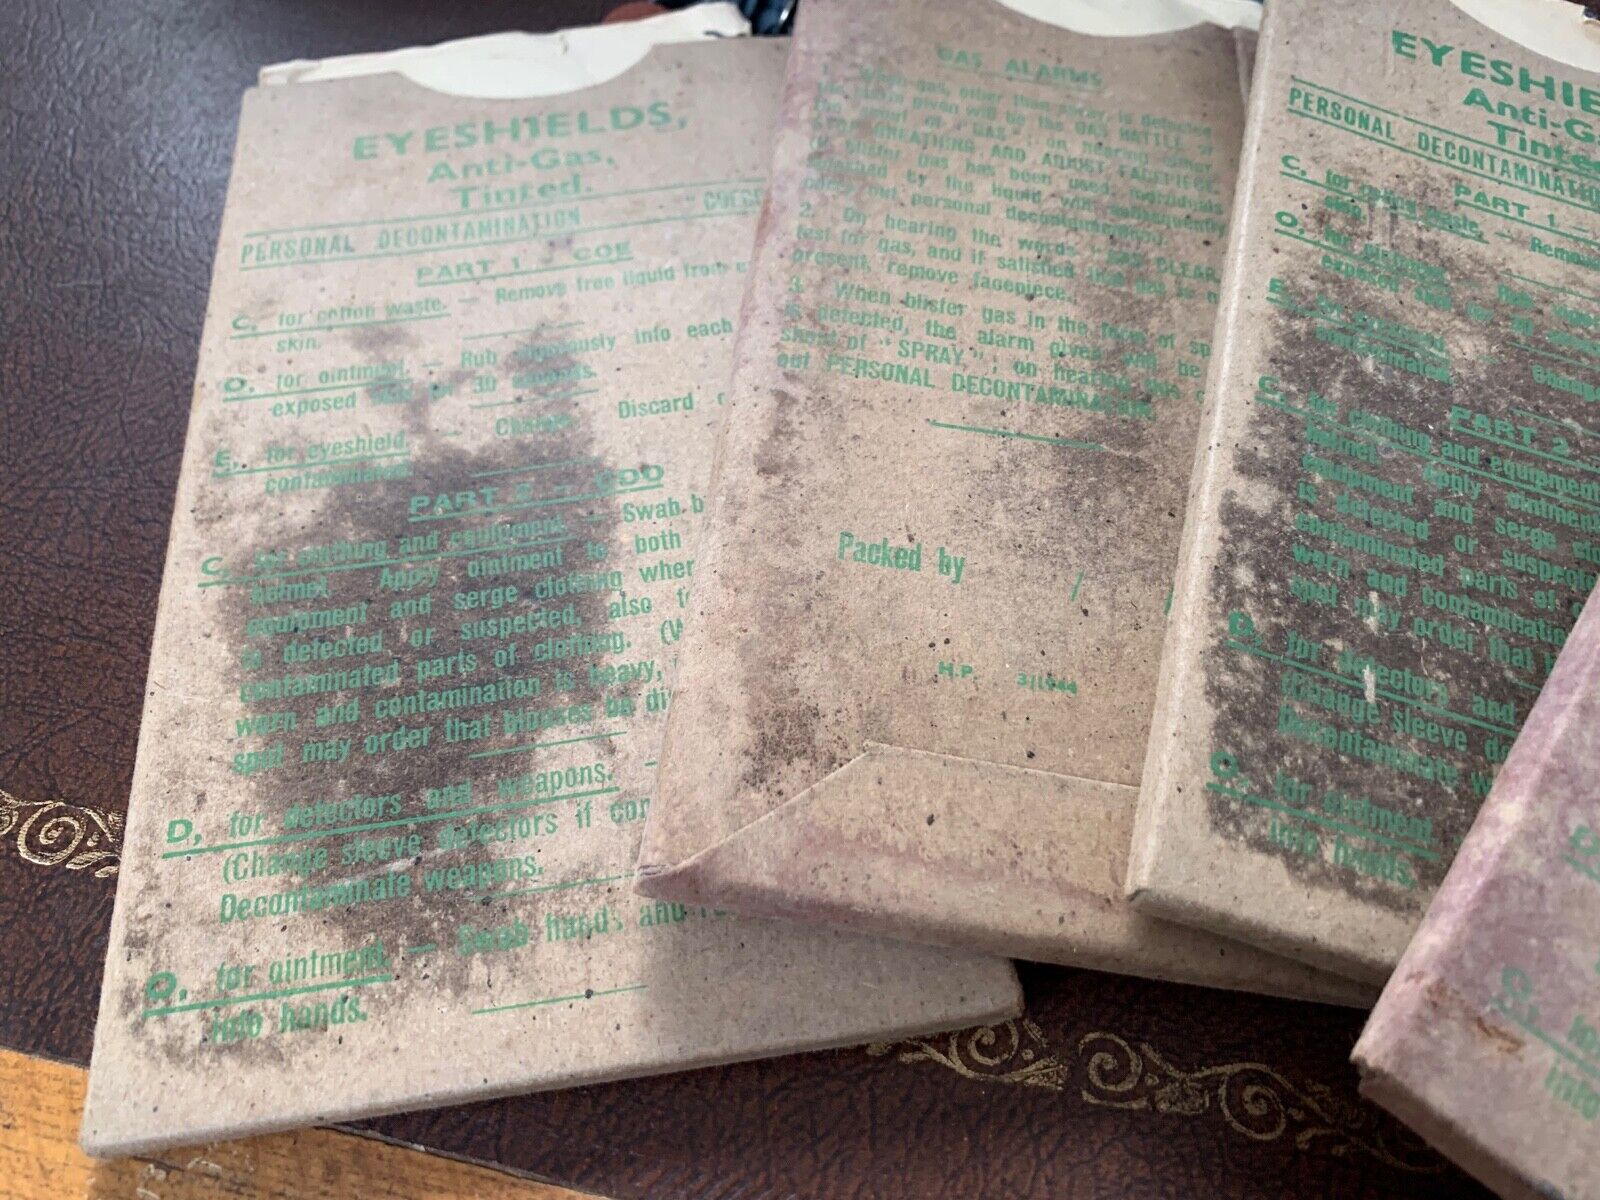 EYESHIELDS,
Anti-Gas,
Tinted.
PERSONAL DECONTAMINATION
PART 1 — COE
C, for cotton waste. — Remove free liquid from
skin.
O, for ointment. — Rub vigorously into each
exposed for 30 seconds.
E, for eyeshield. — Change. Discard
contaminated.
PART 2 — CDO
C, for clothing and equipment. — Swab
helmet. Apply ointment to both
equipment and serge clothing
is detected or suspected, also
contaminated parts of clothing.
warn and contamination is heavy,
spot may order that blouses be
D, for detectors and weapons. —
(Change sleeve detectors if
Decontaminate weapons.
O, for ointment. — Swab hands and
into hands.
GAS ALARMS
1. When gas, other than spray, is detected
the alarm given will be the GAS RATTLE or
the shout of "GAS", on hearing either
STOP BREATHING AND ADJUST FACEPIECE.
If blister gas has been used, individuals
by the liquid will subsequently
carry out personal decontamination.
2. On hearing the words "GAS CLEAR
test for gas, and if satisfied that gas is
present, remove facepiece.
3. When blister gas in the form of
is detected, the alarm given will be
shout of "SPRAY", on hearing this
out PERSONAL DECONTAMINATION.
Packed by / /
H.P. 3/1944
Anti-
PERSONAL
PART 1 —
C, for cotton waste. —
skin.
O, for ointment.
exposed skin for 30
E, for eyeshield
contaminated
PART 2
C, for clothing and equipment
helmet. Apply ointment
equipment and serge
is detected or
contaminated parts of
warn and
spot may order that
D, for detectors and
(Change sleeve
Decontaminate
O, for ointment.
into hands.
into